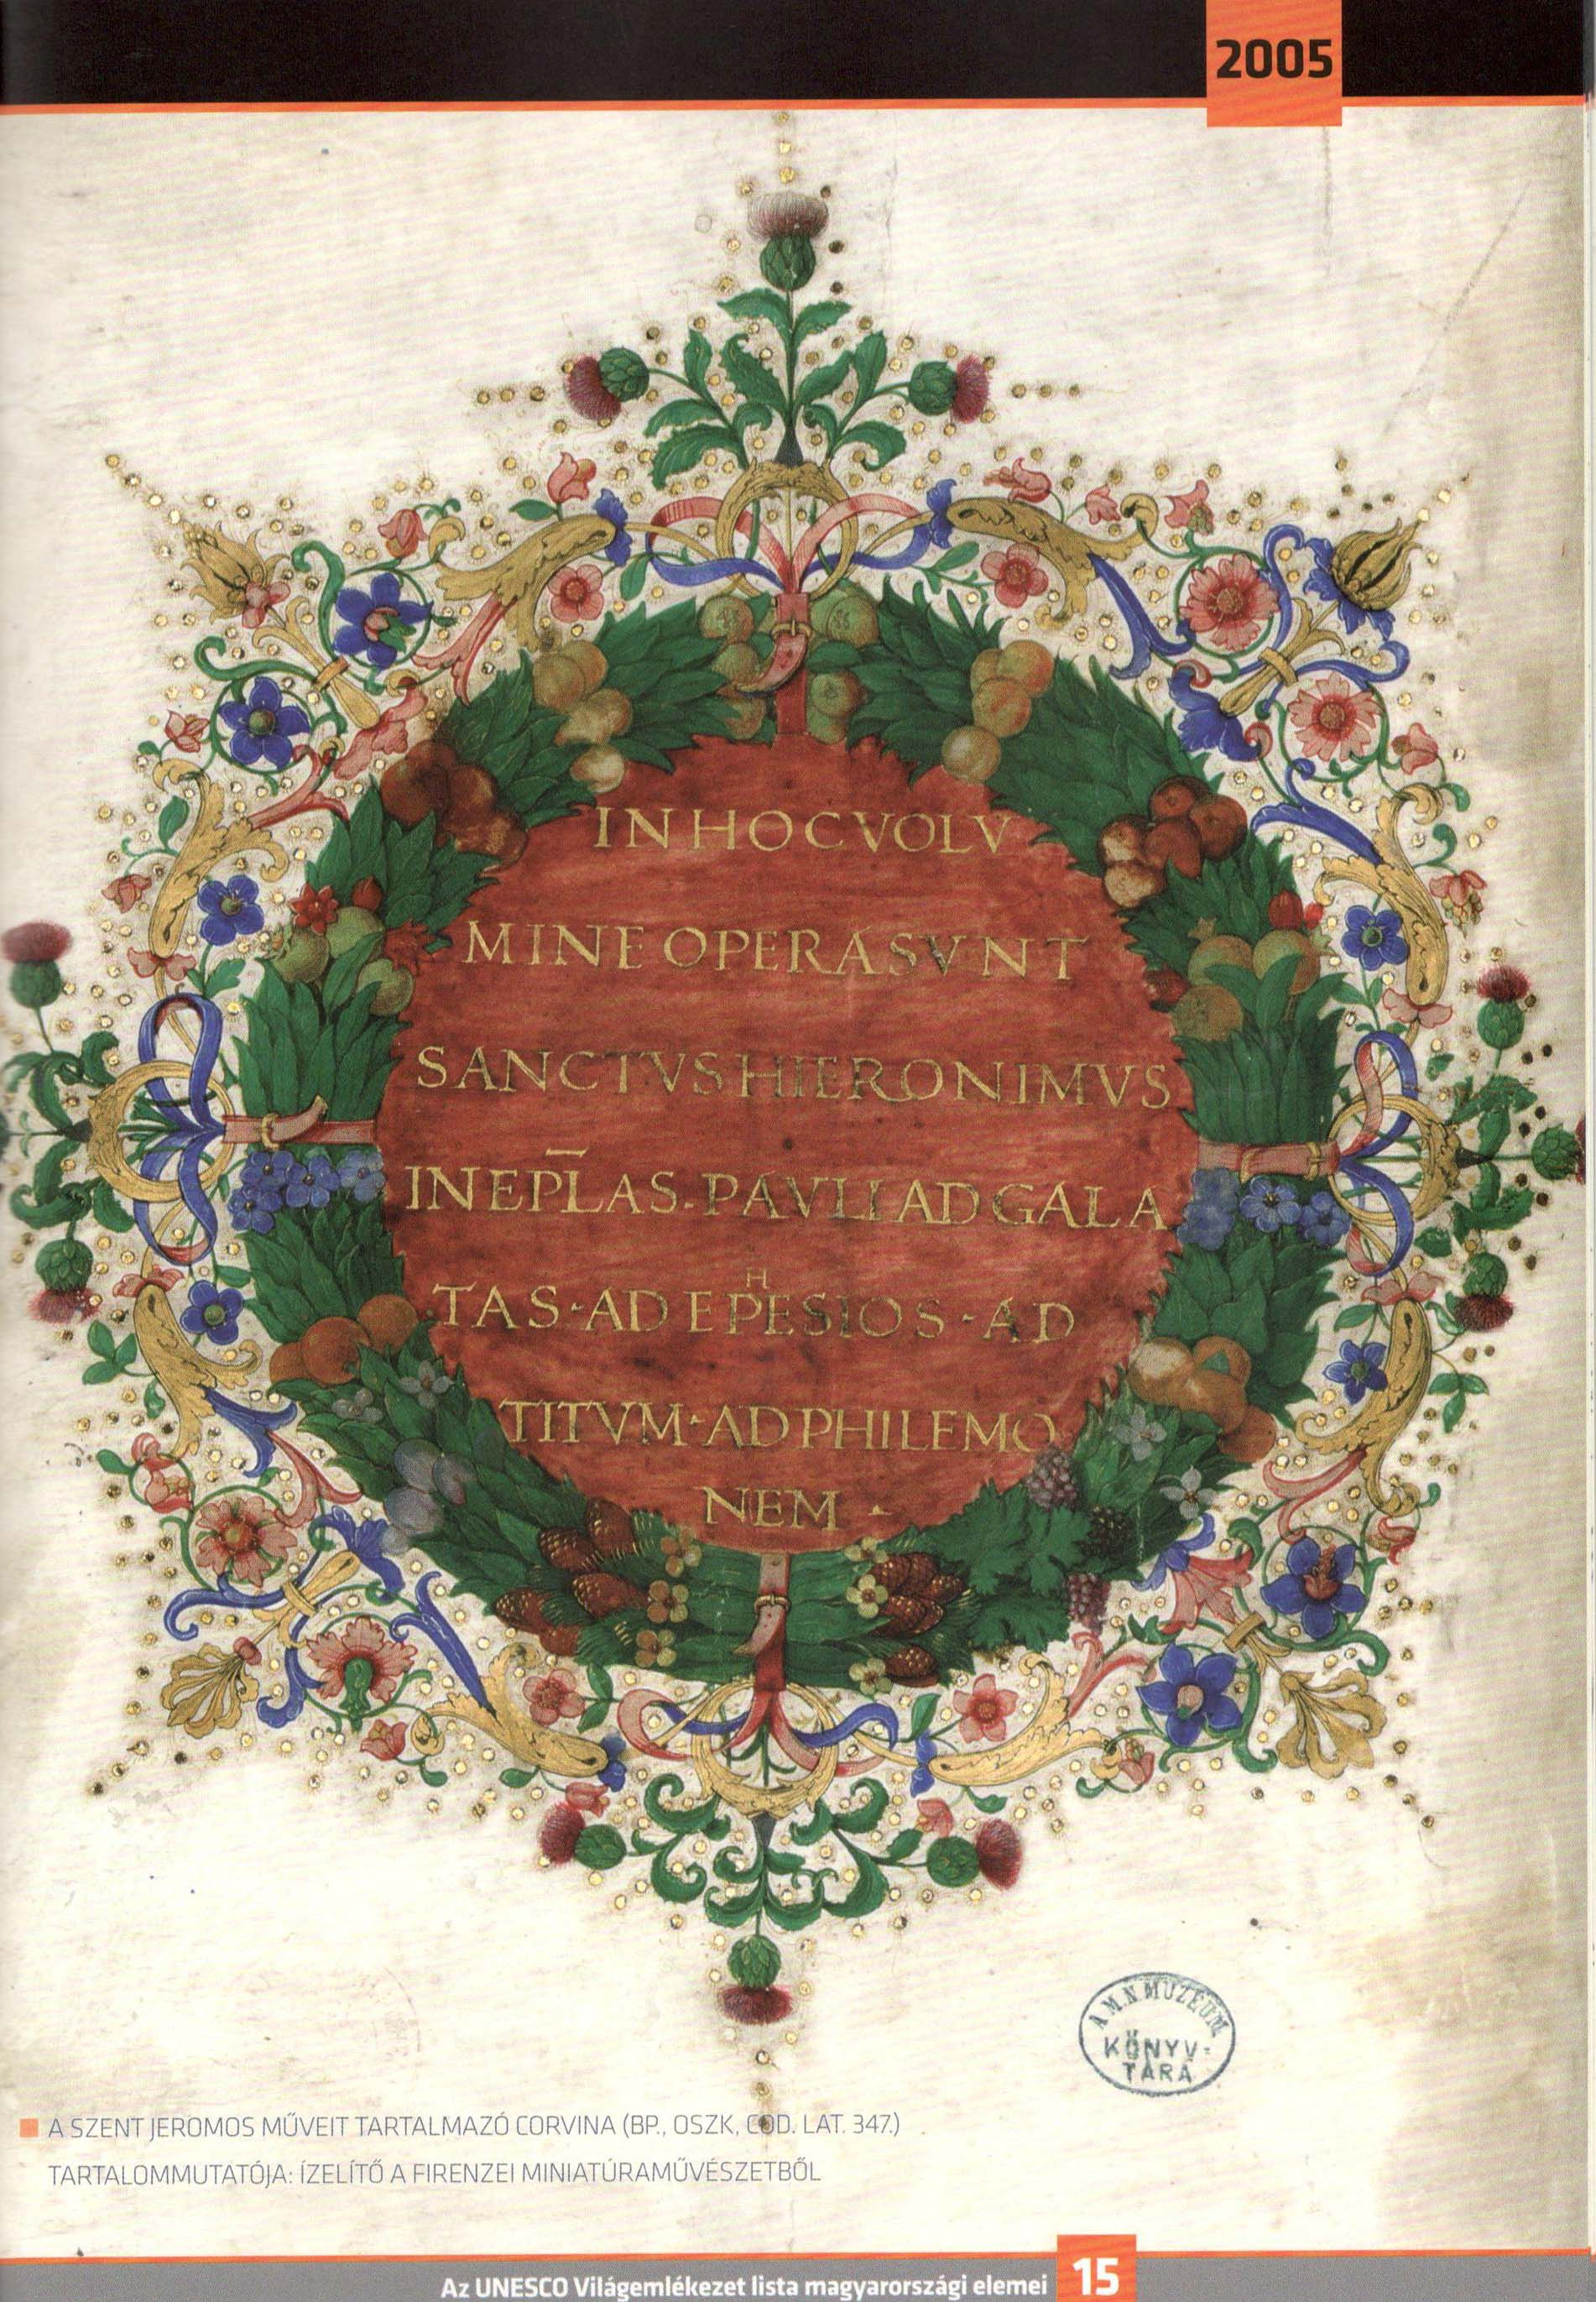 2005
IN HOC VOLV
MINE OPERA SVNT
SANCTVS HIERONIMVS
IN EPL̄AS. PAVLI AD GALA
TAS · AD EPHESIOS · AD
TITVM · AD PHILEMO
NEM ·
A M. N. MUZEUM
KÖNYV-
TARA
A SZENT JEROMOS MŰVEIT TARTALMAZÓ CORVINA (BP., OSZK, COD. LAT. 347.)
TARTALOMMUTATÓJA: ÍZELÍTŐ A FIRENZEI MINIATÚRAMŰVÉSZETBŐL
Az UNESCO Világemlékezet lista magyarországi elemei 15